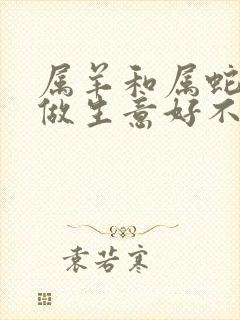 属羊和属蛇
做生意好不
袁若寒